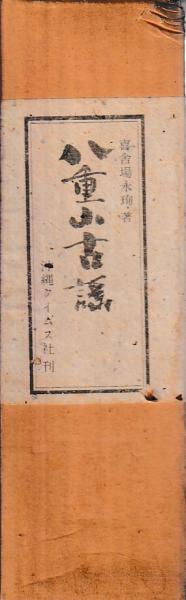 喜舎場永珣・著
八重山古謡
沖縄タイムス社刊